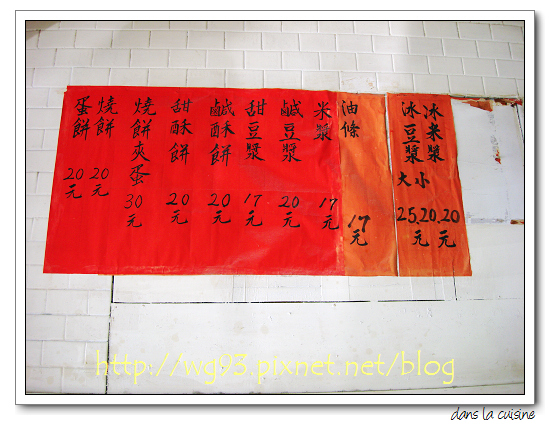 冰米漿
冰豆漿
大 小
25.20.20
元 元
油條 17元
米漿 17元
鹹豆漿 20元
甜豆漿 17元
鹹酥餅 20元
甜酥餅 20元
燒餅夾蛋 30元
燒餅 20元
蛋餅 20元
http://wg93.pixnet.net/blog
dans la cuisine